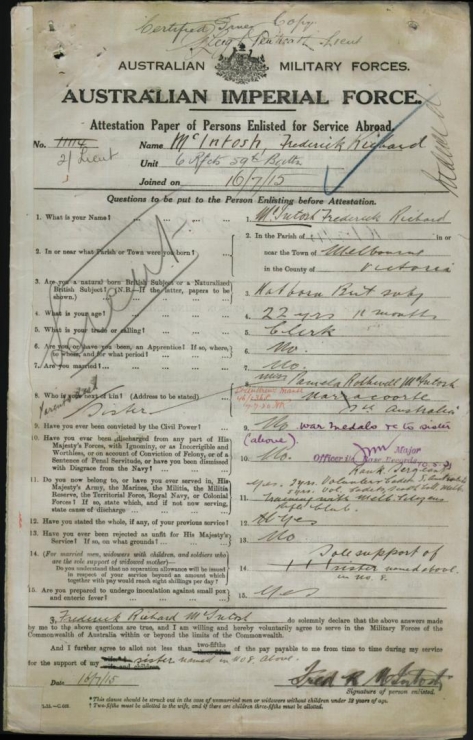 Certified True Copy
AUSTRALIAN MILITARY FORCES.
AUSTRALIAN IMPERIAL FORCE.
Attestation Paper of Persons Enlisted for Service Abroad.
No. Name McIntosh, Frederick Richard
2/Lieut Unit 6 Rfcts 59th Battn
Joined on 16/7/15
Questions to be put to the Person Enlisting before Attestation.
1. What is your Name? 1. McIntosh Frederick Richard
2. In or near what Parish or Town were you born? 2. In the Parish of in or
near the Town of Melbourne
in the County of Victoria
3. Are you a natural born British Subject or a Naturalized
British Subject? (N.B.—If the latter, papers to be
shown.) 3. Nat born Brit subj
4. What is your age? 4. 22 yrs months
5. What is your trade or calling? 5. Clerk
6. Are you, or have you been, an Apprentice? If so, where,
to whom, and for what period? 6. No.
7. Are you married? 7. No.
8. Who is your next of kin? (Address to be stated) 8. Miss Pamela Rothwell McIntosh
Sister Narracoorte
Sth Australia
9. Have you ever been convicted by the Civil Power? 9. No
war medals to sister
(above)
10. Have you ever been discharged from any part of His
Majesty's Forces, with Ignominy, or as Incorrigible and
Worthless, or on account of Conviction of Felony, or of a
Sentence of Penal Servitude, or have you been dismissed
with Disgrace from the Navy? 10. No.
Major
Officer i/c Base Records
11. Do you now belong to, or have you ever served in, His
Majesty's Army, the Marines, the Militia, the Militia
Reserve, the Territorial Force, Royal Navy, or Colonial
Forces? If so, state which, and if not now serving,
state cause of discharge 11. Yes. 3 yrs. Volunteer Cadets
12. Have you stated the whole, if any, of your previous service? 12. Yes
13. Have you ever been rejected as unfit for His Majesty's
Service? If so, on what grounds? 13. No
14. (For married men, widowers with children, and soldiers who
are the sole support of widowed mother)—
Do you understand that no separation allowance will be issued
in respect of your service beyond an amount which
together with pay would reach eight shillings per day? 14. Sole support of
sister named above
in no 8.
15. Are you prepared to undergo inoculation against small pox
and enteric fever? 15. Yes
I, Frederick Richard McIntosh do solemnly declare that the above answers made
by me to the above questions are true, and I am willing and hereby voluntarily agree to serve in the Military Forces of the
Commonwealth of Australia within or beyond the limits of the Commonwealth.
And I further agree to allot not less than two-fifths of the pay payable to me from time to time during my service
for the support of my sister named in No 8 above.
Date 16/7/15 Fred R McIntosh
Signature of person enlisted.
*This clause should be struck out in the case of unmarried men or widowers without children under 18 years of age.
† Two-fifths must be allotted to the wife, and if there are children three-fifths must be allotted.